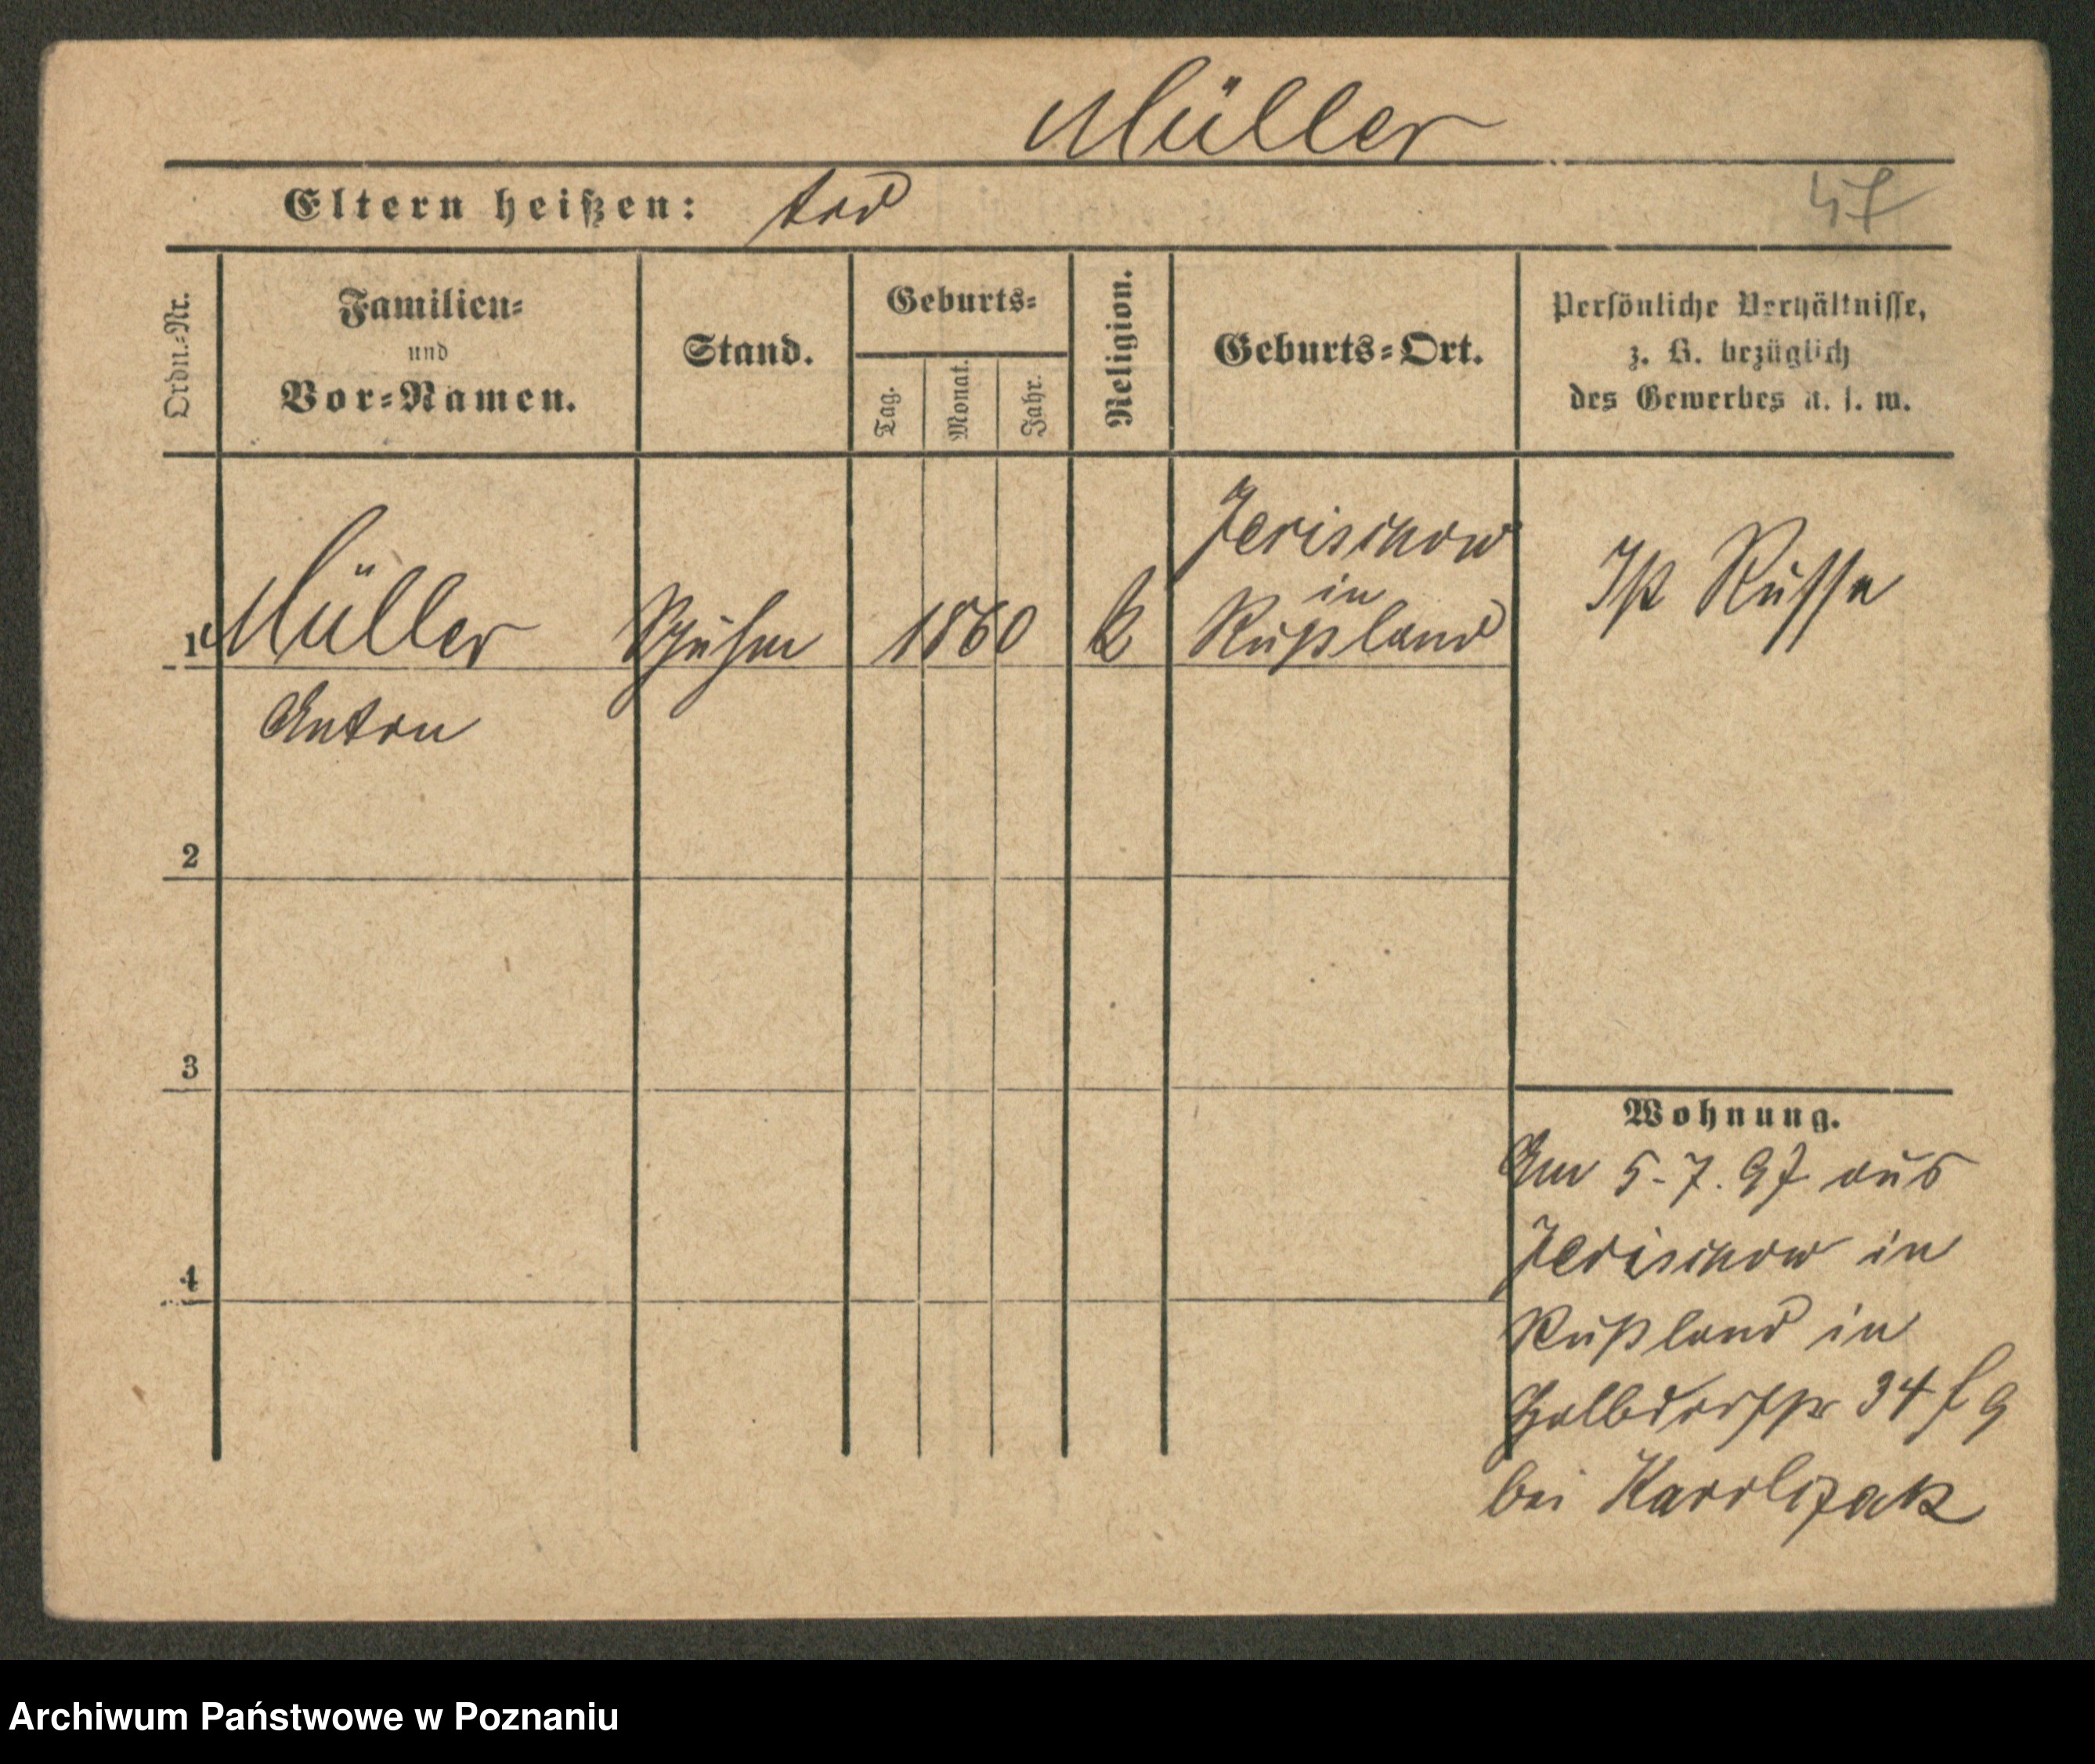 Müller
Eltern heißen: tod
47
Ordn.-Nr.
Familien=
und
Vor=Namen.
Stand.
Geburts=
Tag.
Monat.
Jahr.
Religion.
Geburts=Ort.
Persönliche Verhältnisse,
z. B. bezüglich
des Gewerbes u. s. w.
1 Müller
Anton
1860
k
in
Rußland
Ist Russe
2
3
4
Wohnung.
Am 5.7.97 aus
in
Rußland in
Halbdorfstr 34
bei
Archiwum Państwowe w Poznaniu